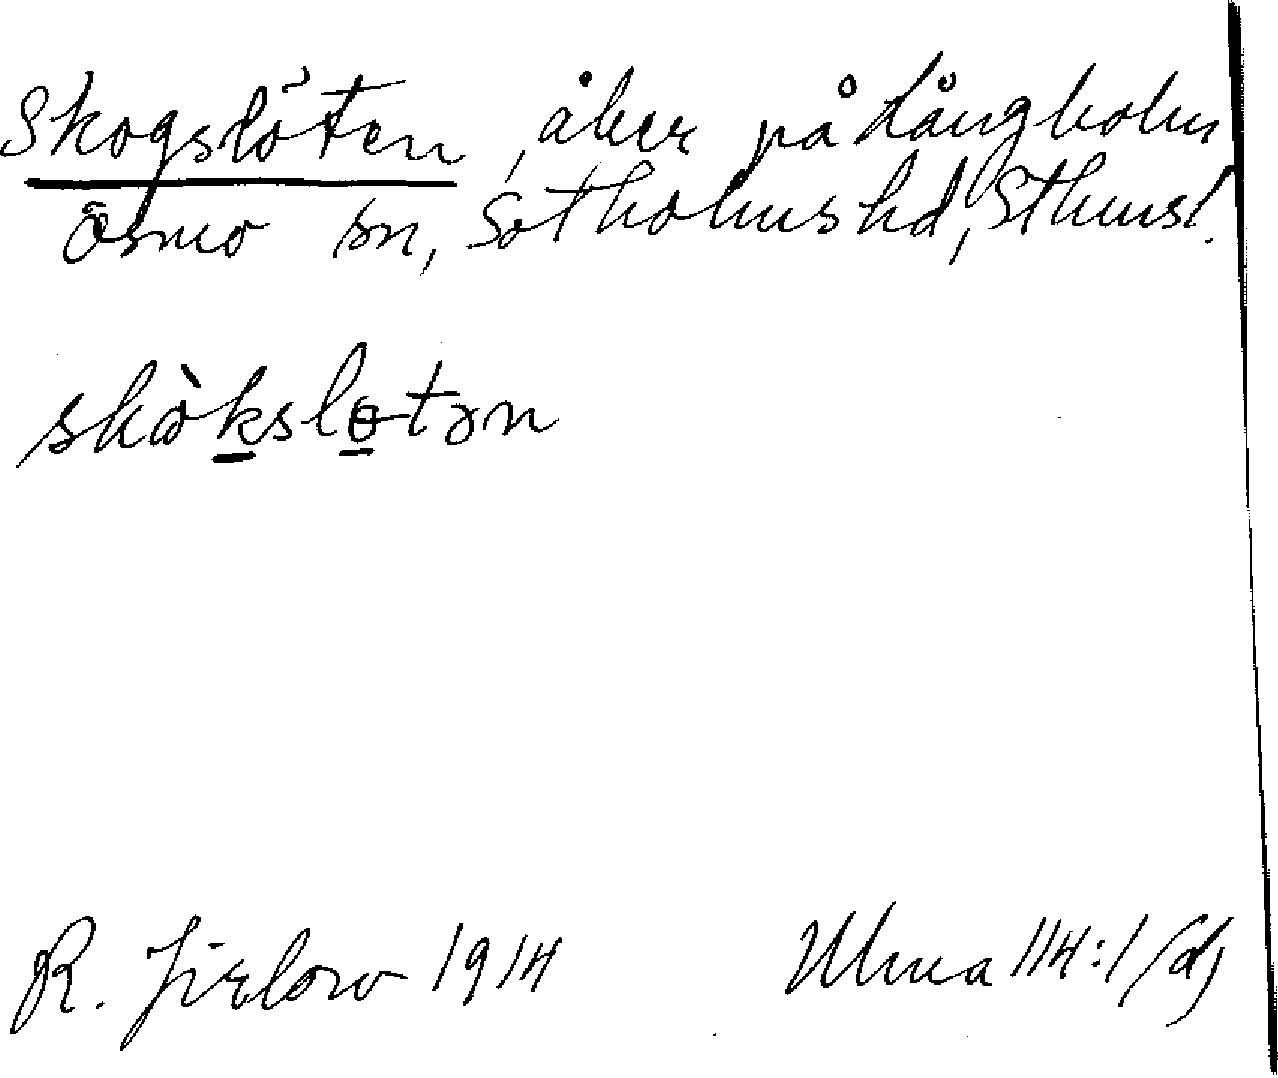 Skogslöten, åker på Långholm
Ösmo sn, Sotholms hd, Sthmsl.
skòkslɵtən
R. Jirlow 1914
Ulma 114:1